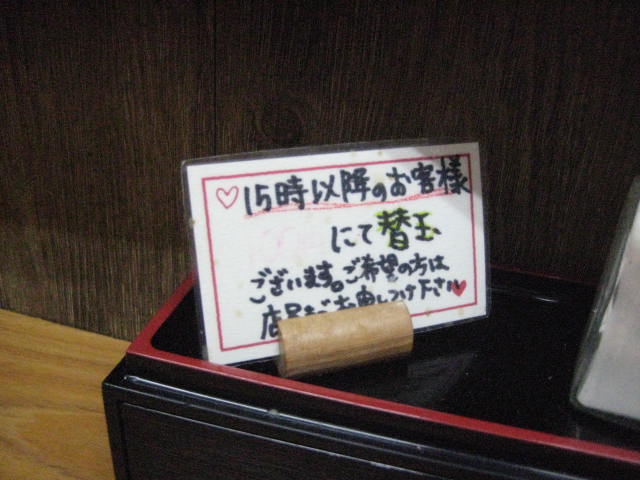 ♡15時以降のお客様
にて替玉
ございます。ご希望の方は
店員までお申しつけ下さい♥